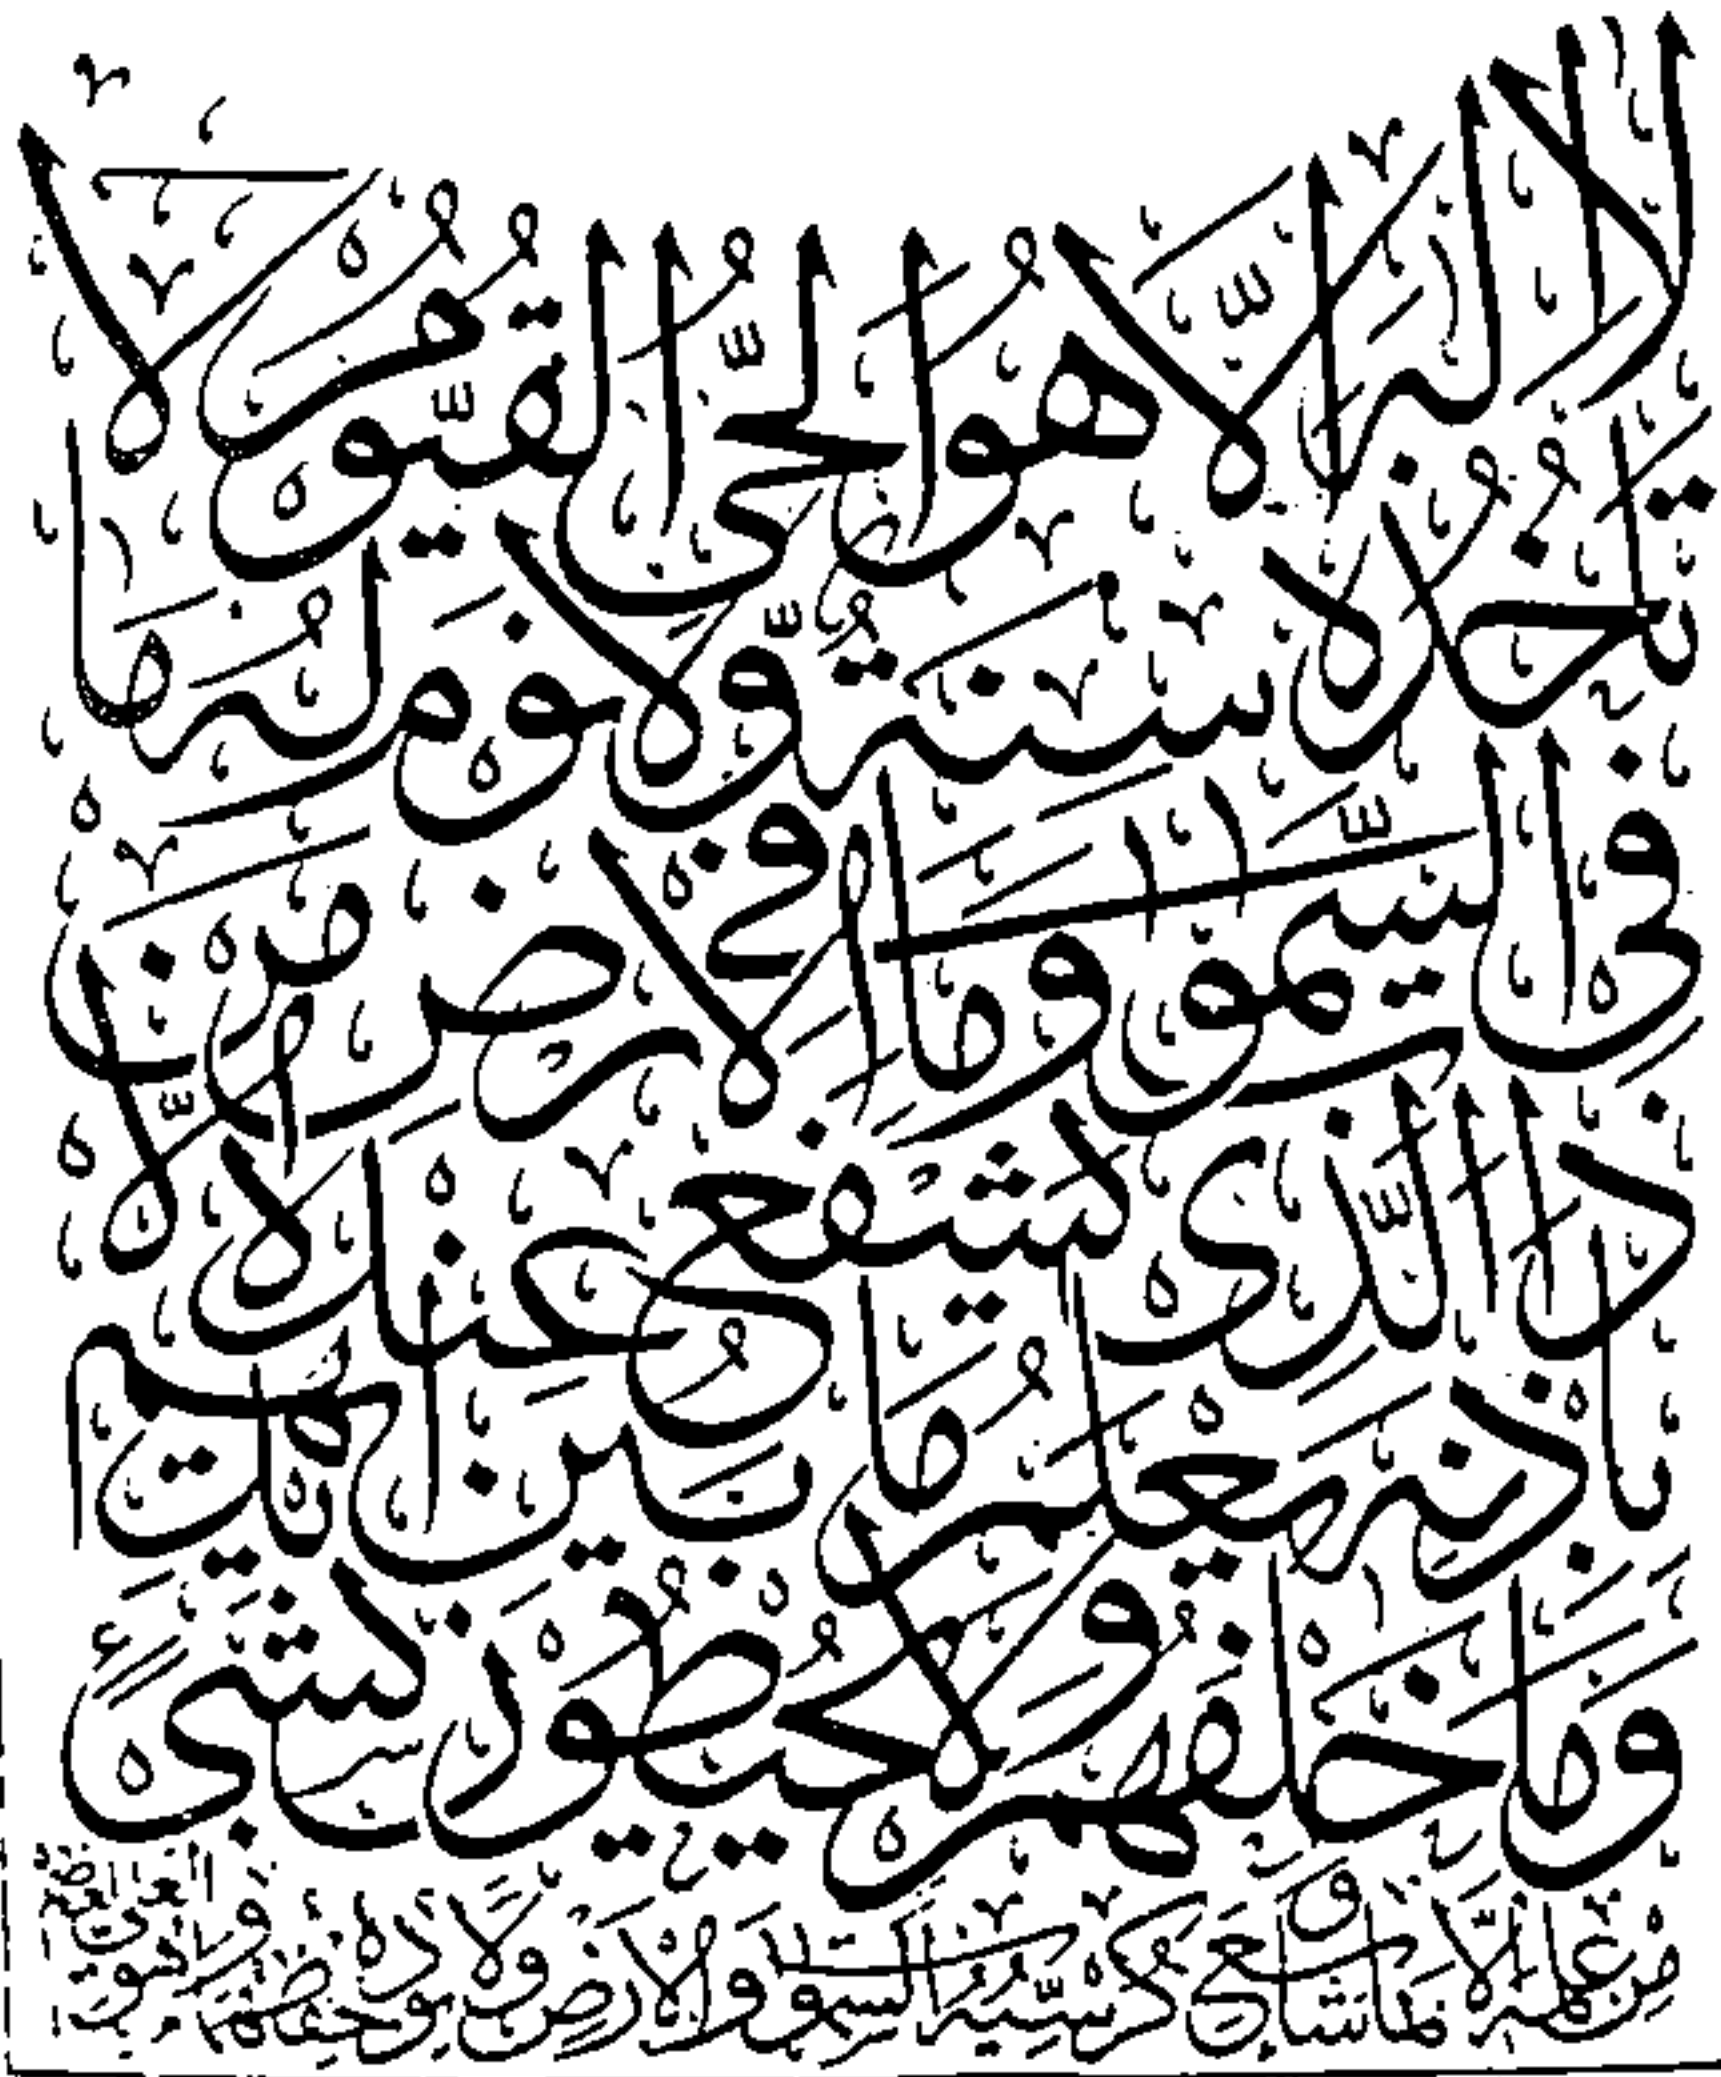 لا اله الا هو الحى القيوم لا
تاخذه سنة ولا نوم له ما
فى السموت وما فى الارض من
ذا الذى يشفع عنده الا
باذنه يعلم ما بين ايديهم
وما خلفهم ولا يحيطون بشىء
من علمه الا بما شاء وسع كرسيه السموت والارض ولا يؤده حفظهما وهو العلى العظيم